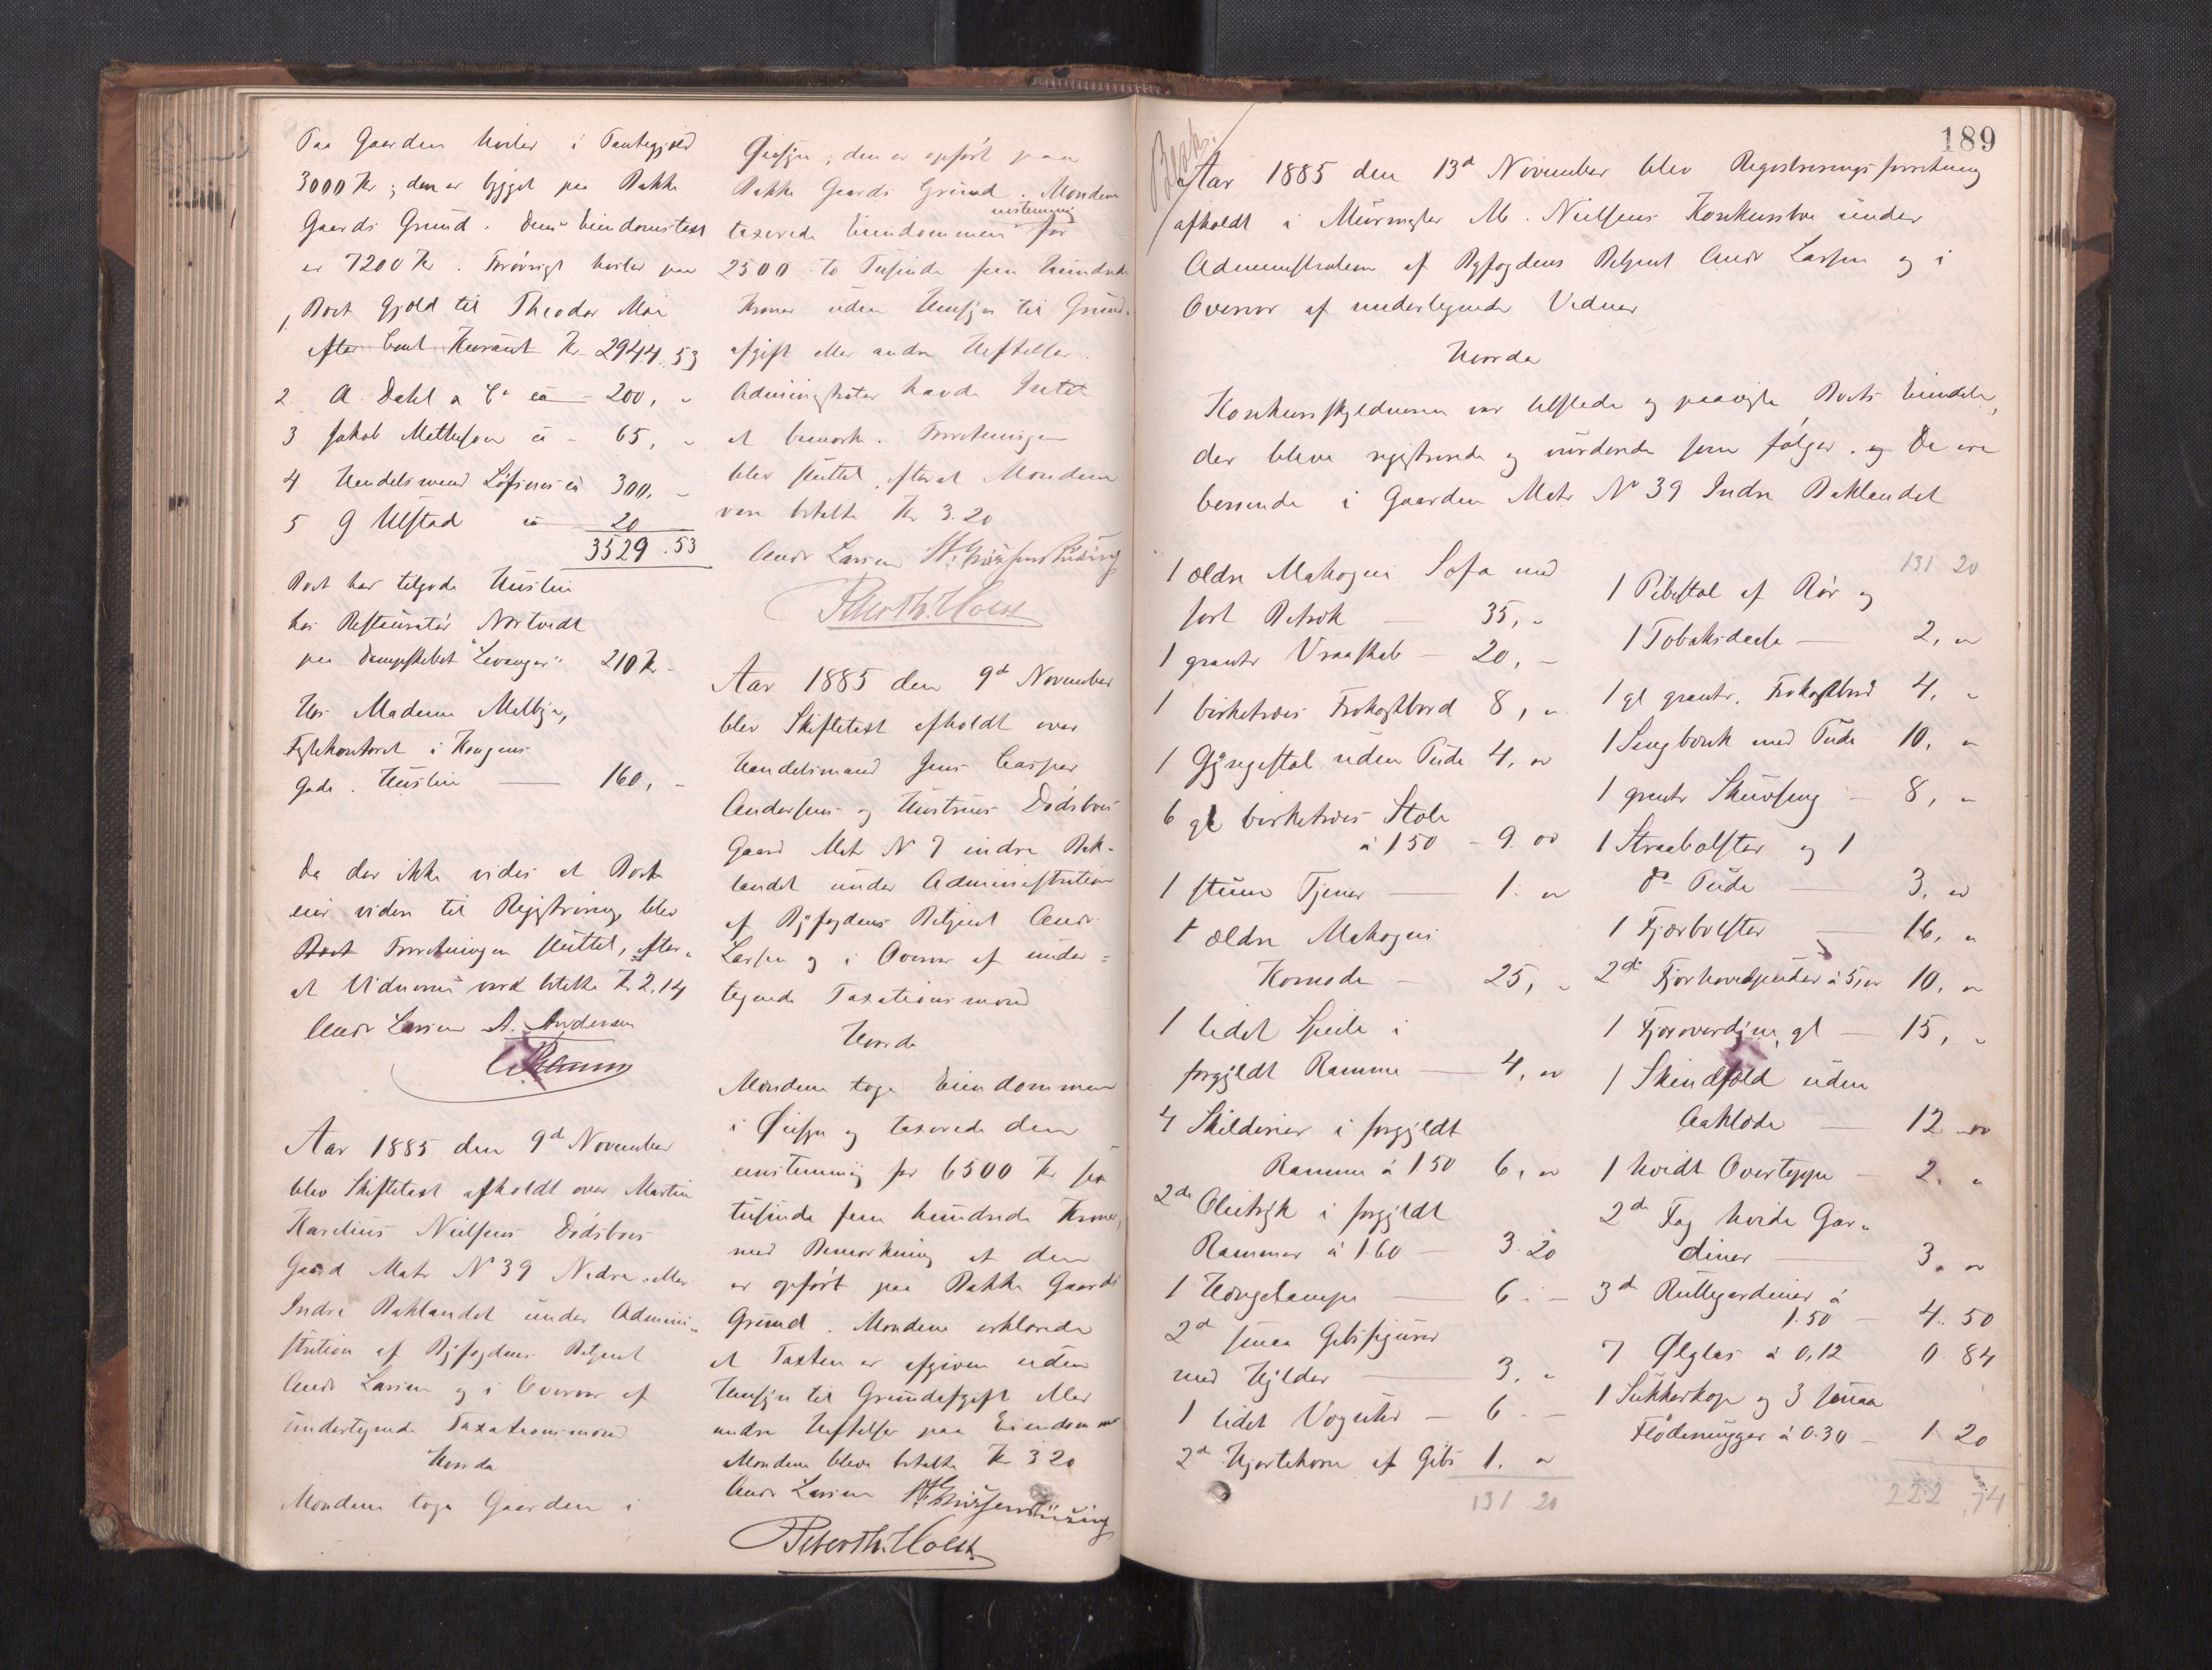 Paa Gaarden hviler i Pantegjæld
3000 Kr; den er bygget paa Bakke
Gaards Grund. Dens Eiendomstaxt
er 7200 Kr. Forøvrigt hviler paa
1, Boet Gjæld til Theodor Moe
efter Cont Kurant Kr. 2944.53
2 A. Dahl & Co ca - 200, -
3 Jakob Mathisen ca - 65, -
4 Handelsmand ca 300, -
5 G Ulstad ca 20
3529.53
Boet har tilgode Husleie
hos Restauratør Nortvedt
paa Dampskibet "Levanger" 210 Kr -
Hos Madame Melbye,
i Kongens
Gade. Husleie - 160, -
Da der ikke vides at Boet
eier videre til Registrering, blev
Boet Forretningen sluttet, efter-
at Vidnerne vare betalte Kr 2.14
Andr Larsen A. Andersen
Aar 1885 den 9de November
blev Skiftetaxt afholdt over Martin
Karelius Nielsens Dødsboes
Gaard Matr No 39 Nedre eller
Indre Baklandet under Admini-
stration af Byfogdens Betjent
Andr Larsen og i Overvær af
undertegnede Taxationsmænd
Hvorda
Mændene toge Gaarden i
Øiesyn; den er opført paa
Bakke Gaards Grund. Mændene
enstemmig
taxerede Eiendommen for
2500 to Tusinde fem Hundrede
Kroner uden Hensyn til Grund-
afgift eller andre Heftelser.
Administrator havde Intet
at bemærke. Forretningen
blev sluttet, efterat Mændene
vare betalte Kr 3.20
Andr Larsen
Peter Th. Holst
Aar 1885 den 9de November
blev Skiftetaxt afholdt over
Handelsmand Jens Casper
Andersens og Hustrues Dødsboes
Gaard Matr No 7 indre Bak-
landet under Administration
af Byfogdens Betjent Andr
Larsen og i Overvær af under-
tegnede Taxationsmænd
Hvorda
Mændene toge Eiendommen
i Øiesyn og taxerede den
enstemmig for 6500 Kr sex
tusinde fem hundrede Kroner,
med Bemærkning at den
er opført paa Bakke Gaards
Grund. Mændene erklærede
at Taxten er afgiven uden
Hensyn til Grundafgift eller
andre Heftelser paa Eiendommen
Mændene bleve betalte Kr 3 20
Andr Larsen
Peter Th. Holst
189
Aar 1885 den 13de November blev Registreringsforretning
afholdt i Murmester M. Nielsens Konkursbo under
Administration af Byfogdens Betjent Andr Larsen og i
Overvær af undertegnede Vidner
Hvorda
Konkursskyldneren var tilstede og paaviste Boets Eiendele,
der bleve registrerede og vurderede som følger. og De ere
beroende i Gaarden Matr No 39 Indre Baklandet
1 ældre Mahogni Sofa med
sort Betræk - 35, -
1 grantr Vraaskab - 20, -
1 birketræes Frokostbord 8, -
1 Gyngestol uden Pude 4, -
6 gl birketræes Stole
à 1 50 - 9. -
1 stum Tjener - 1. -
1 ældre Mahogni
Komode - 25, -
1 lidet Speile i
forgyldt Ramme - 4, -
4 Skilderier i forgyldt
Ramme à 1 50 6, -
2de Olietryk i forgyldt
Rammer à 1.60 - 3.20
1 Hængelampe - 6. -
2de smaa Gibsfigurer
med Hylder - 3, -
1 lidet Væguhr - 6 -
2de Hjortehorn af Gibs 1. -
131.20
131 20
1 Pibestol af Rør og
1 Tobaksdaase - 2, -
1 gl grantr. Frokostbord 4, -
1 Sengbænk med Pude 10, -
1 grantr Skuvseng - 8, -
1 Straabolster og 1
do Pude - 3. -
1 Fjærbolster - 16, -
2de Fjærhovedpuder à 5, - 10, -
1 Fjæroverdyne, gl - 15, -
1 Skindfæld uden
Aaklæde - 12 -
1 hvidt Overteppe - 2. -
2de Fag hvide Gar-
diner - 3, -
3de Rullegardiner à
1.50 - 4. 50
7 Ølglas à 0,12 0 84
1 Sukkerkop og 3 smaa
Flødemugger à 0.30 - 1. 20
222 74